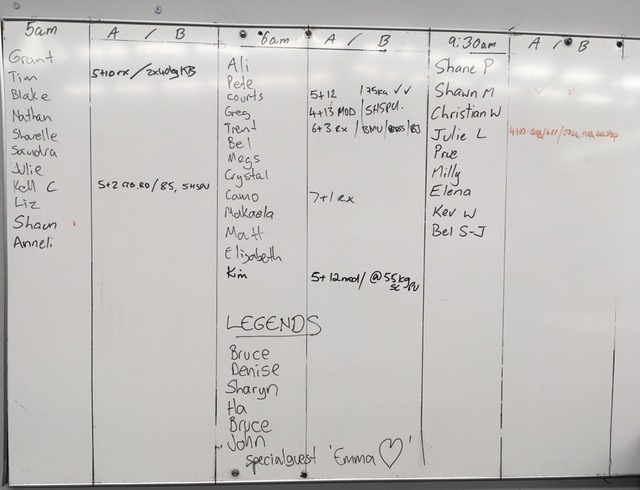 5am A / B 6am A / B 9:30am A / B
Grant Ali Shane P
Tim 5+10 rx / 2x40kg KB Pete Shawn M ✓ ✓
Blake courts 5+12 / 75kg ✓✓ Christian W
Nathan Greg 4+13 MOD / SHSPU. Julie L
Shavelle Trent 6+3 Rx / BMU / Prue
Sandra Bel Milly
Julie Megs Elena
Kell C 5+2 / 85, SHSPU Crystal Kev W
Liz Camo 7+1 Rx Bel S-J
Shaun Makaela
Anneli Matt
Elizabeth
Kim 5+12 mod / @ 55kg
LEGENDS
Bruce
Denise
Sharyn
Ha
Bruce
John
special guest 'Emma ♡'